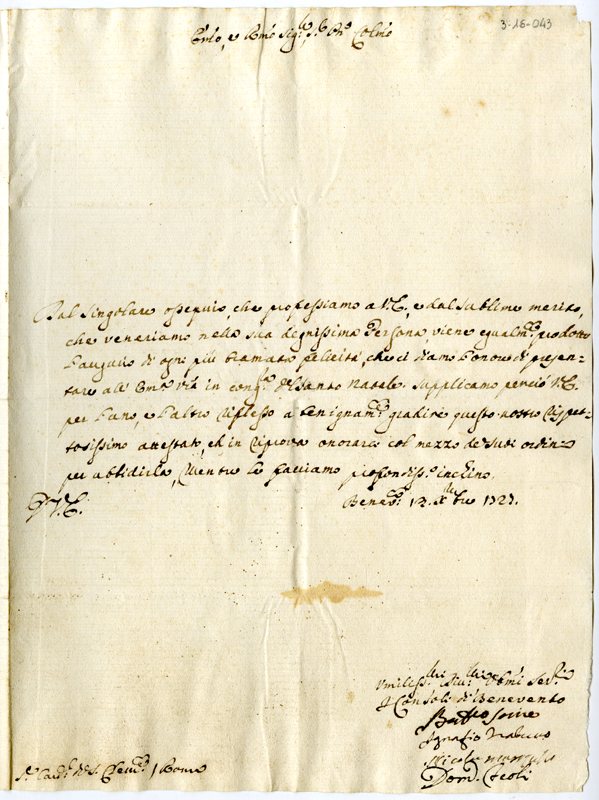 3-16-043
Em̃o, e Rm̃o Sig.re, S.e P͠ne Col͠mo
Dal singolare ossequio, che professiamo a V.E., e dal sublime merito,
che veneriamo nella sua degnissima Persona, viene egualm.te prodotto
l'augurio di ogni più bramata felicità, che ci diamo l'onore di presen-
tare all' Em̃a V͠ra in cong.ra del santo Natale. Supplicamo perciò V.E.
per l'uno, e l'altro riflesso a benignam.te gradire questo nostro rispet-
tosissimo attestato, ed in riprova onorarci col mezzo de suoi ordini
per ubbidirla, mentre le facciamo profondiss.o inchino.
Di V.E. Benev.to 13. Xbre 1727.
Umiliss.mi Div.mi Obm̃i Ser.ri
I Consoli di Benevento
Ignazio
Nicola
Dom.co Feoli
S.r Card. di S. Clem.te / Roma